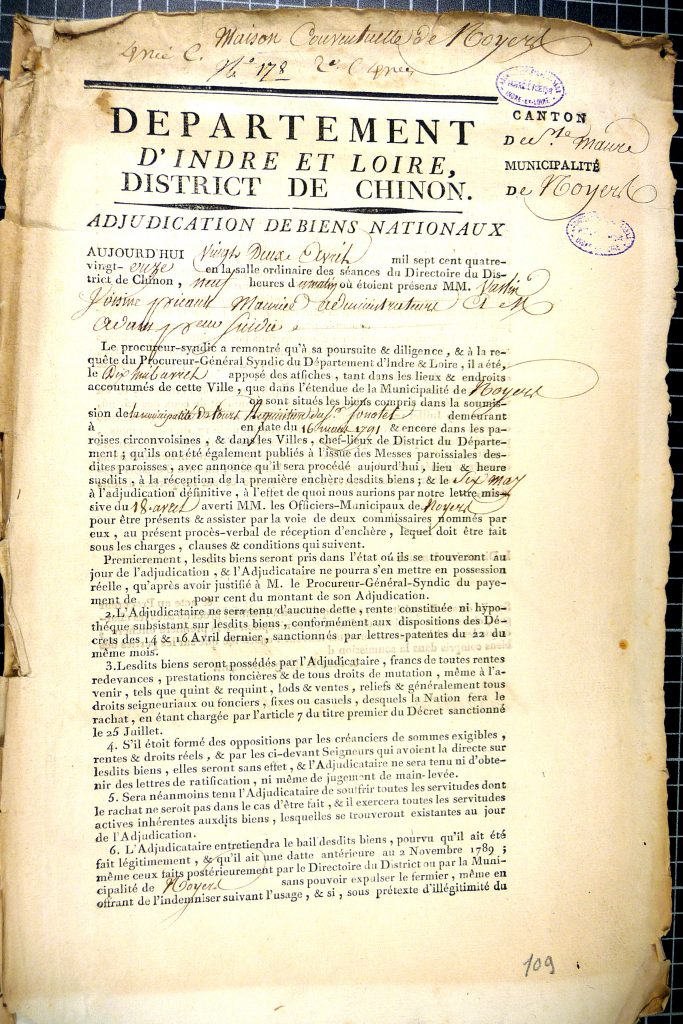 Maison Conventuelle de Noyers
N.º 178 2e
CANTON
De Ste Maure
MUNICIPALITÉ
De Noyers
DEPARTEMENT
D'INDRE ET LOIRE,
DISTRICT DE CHINON.
ADJUDICATION DE BIENS NATIONAUX
AUJOURD'HUI Vingt Deux Avril mil sept cent quatre-
vingt-onze en la salle ordinaire des séances du Directoire du Dis-
trict de Chinon, neuf heures du matin où étoient présens MM.
administrateurs Et M
Adam
Le procureur-syndic a remontré qu'à sa poursuite & diligence, & à la re-
quête du Procureur-Général Syndic du Département d'Indre & Loire, il a été,
le Dix huit avril apposé des affiches, tant dans les lieux & endroits
accoutumés de cette Ville, que dans l'étendue de la Municipalité de Noyers
où sont situés les biens compris dans la soumis-
sion de la municipalité De demeurant
à en date du 16 mars 1791 & encore dans les pa-
roises circonvoisines, & dans les Villes, chef-lieux de District du Départe-
ment; qu'ils ont été également publiés à l'issue des Messes paroissiales des-
dites paroisses, avec annonce qu'il sera procédé aujourd'hui, lieu & heure
susdits, à la réception de la première enchère desdits biens; & le Six may
à l'adjudication définitive, à l'effet de quoi nous aurions par notre lettre mis-
sive du 18 avril averti MM. les Officiers-Municipaux de Noyers
pour être présents & assister par la voie de deux commissaires nommés par
eux, au présent procès-verbal de réception d'enchère, lequel doit être fait
sous les charges, clauses & conditions qui suivent.
Premierement, lesdits biens seront pris dans l'état où ils se trouveront au
jour de l'adjudication, & l'Adjudicataire ne pourra s'en mettre en possession
réelle, qu'après avoir justifié à M. le Procureur-Général-Syndic du paye-
ment de pour cent du montant de son Adjudication.
2. L'Adjudicataire ne sera tenu d'aucune dette, rente constituée ni hypo-
théque subsistant sur lesdits biens, conformément aux dispositions des Dé-
crets des 14 & 16 Avril dernier, sanctionnés par lettres-patentes du 22 du
même mois.
3. Lesdits biens seront possédés par l'Adjudicataire, francs de toutes rentes
redevances, prestations foncières & de tous droits de mutation, même à l'a-
venir, tels que quint & requint, lods & ventes, reliefs & généralement tous
droits seigneuriaux ou fonciers, fixes ou casuels, desquels la Nation fera le
rachat, en étant chargée par l'article 7 du titre premier du Décret sanctionné
le 25 Juillet.
4. S'il étoit formé des oppositions par les créanciers de sommes exigibles,
rentes & droits réels, & par les ci-devant Seigneurs qui avoient la directe sur
lesdits biens, elles seront sans effet, & l'Adjudicataire ne sera tenu ni d'obte-
nir des lettres de ratification, ni même de jugement de main-levée.
5. Sera néanmoins tenu l'Adjudicataire de souffrir toutes les servitudes dont
le rachat ne seroit pas dans le cas d'être fait, & il exercera toutes les servitudes
actives inhérentes auxdits biens, lesquelles se trouveront existantes au jour
de l'Adjudication.
6. L'Adjudicataire entretiendra le bail desdits biens, pourvu qu'il ait été
fait légitimement, & qu'il ait une datte antérieure au 2 Novembre 1789;
même ceux faits postérieurement par le Directoire du District ou par la Muni-
cipalité de Noyers sans pouvoir expulser le fermier, même en
offrant de l'indemniser suivant l'usage, & si, sous prétexte d'illégitimité du
109